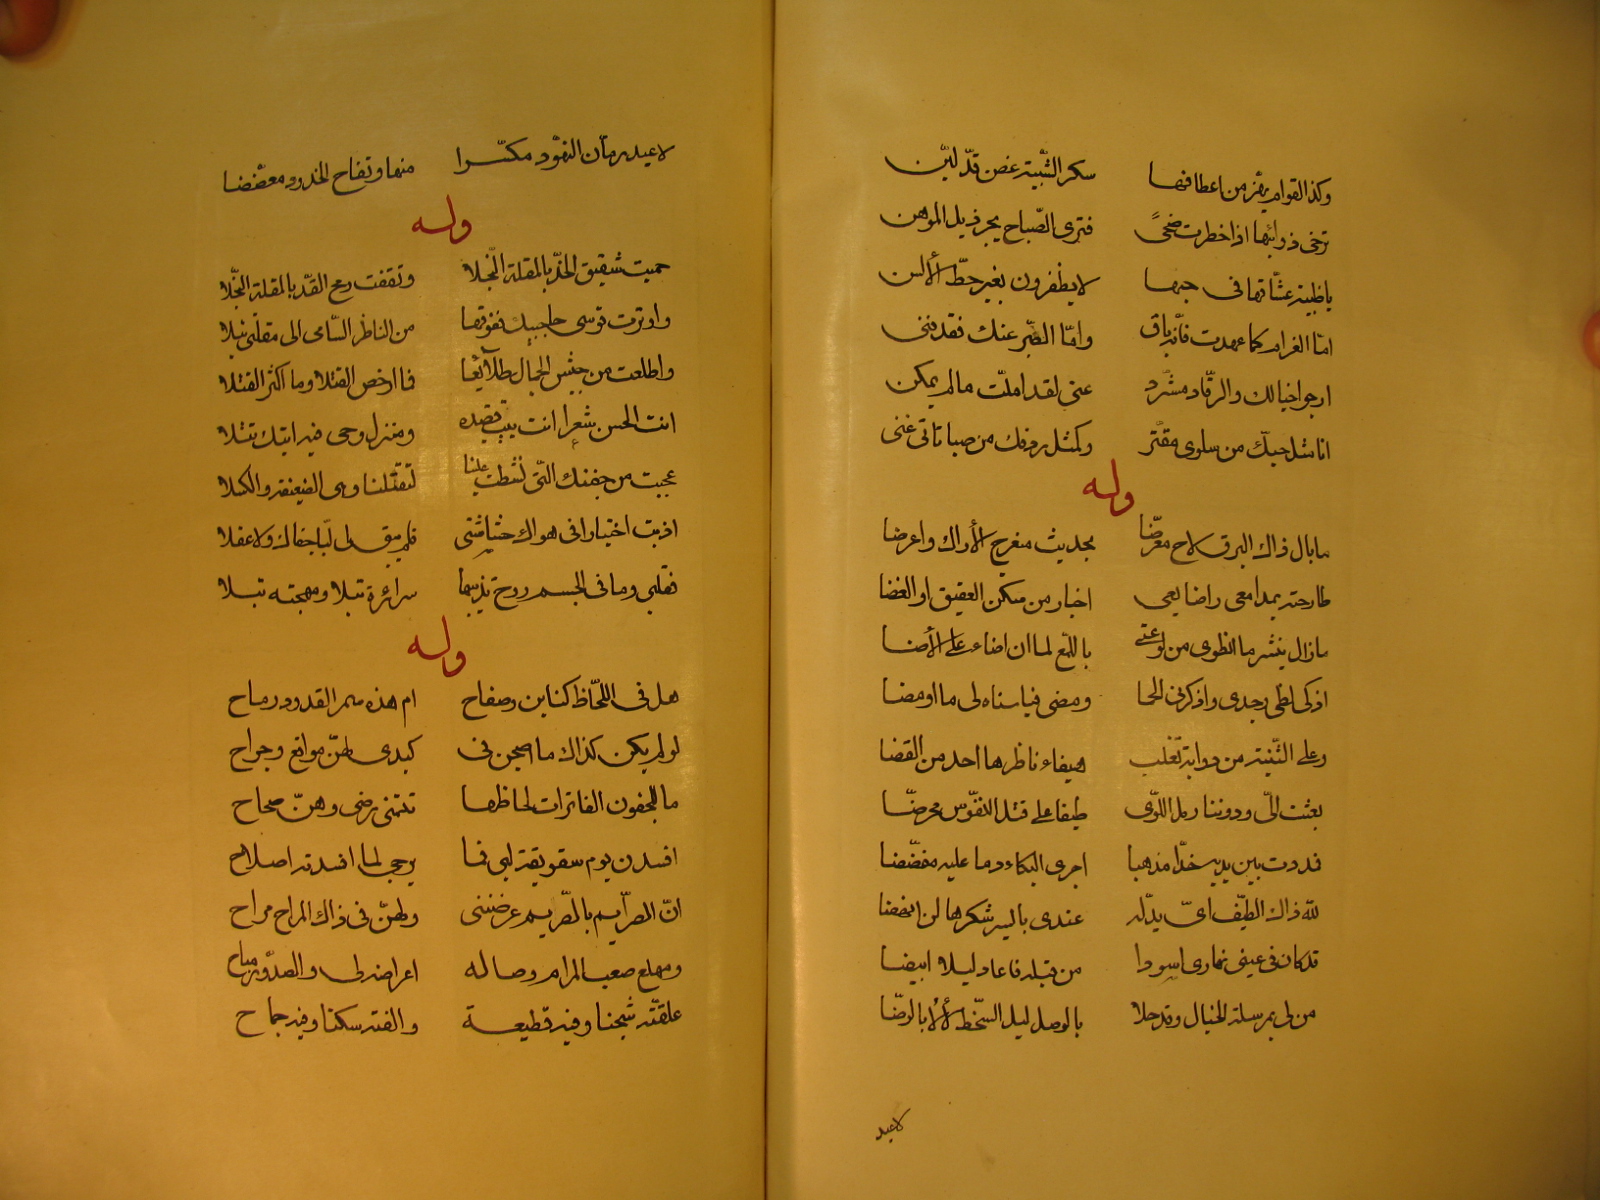 وكذا القوام يهز من اعطافها سكر الشبيبة غصن قدّ ليّن
ترخى ذوائبها اذا خطرت ضحىً فترى الصّباح يجر ذيل الموهن
ياظبية عشّاقها فى حبها لايظفرون بغير حظّ الألسن
امّا الغرام كما عهدت فانه باق وامّا الصّبر عنك فقد فنى
ارجو خيالك والرقّاد مشرّد عنى لقد املّت مالم يمكن
انا مثل حبّك من سلوى مقتر وكمثل ردفك من صباباتى غنى
وله
مابال ذاك البرق لاح معرّضا بحديث منعرج الأراك واعرضا
طارحته بمدامعى راضا يعى اخبار من سكن العقيق او الغضا
مازال ينشر ما انطوى من لوعتى باللمع لما ان اضاء على الأضا
اذكى لظى وجدى واذكرنى الحما ومضى فياسناه لى ما اومضا
وعلى الثّنية من ذوابة تغلب هيفاء ناظرها احد من القضا
بعثت الىّ ودوننا رمل اللوّى طيفا على قتل النفوّس محرضّا
فددت بين يديه خدّا مذهبا اجرى البكاء دما عليه مفضّضا
لله ذاك الطيّف اىّ يد له عندى باليسر شكرها لن انهضا
قد كان فى عينى نهارى اسودا من قبله فاعاد ليلا ابيضا
من لى بمرسلة الخيال وقد حلا بالوصل ليل السّخط ألاّ بالرضّا
لاعيد
لاعيد رمان النهوّد مكسّرا منها وتفاح الخدود معضّضا
وله
حميت شقيق الخدّ بالمقلة النّجلا وثقفت رمح القدّ بالمقلة النجّلا
واوترت قوسى حاجبيك ففوقها من الناظر السّامى الى مقلتى نبلا
واطلعت من جيش الجمال طلآئعًا فما ارخص القتلا وما اكثر القتلا
انت الحسن شعرا انت بيت قصيده ومنزل وحى فيه ايتك تتلا
عجبت من جفنك التّى نشطت علنا لتقتلنا وهى الضيعفة والكسلا
اذبت اختيارا فى هواك حشاشتى فلم يبق لى لبّا جفاك ولا عقلا
فقلبى وما فى الجسم روح تذيبها سرائره تبلا ومهجته تبلا
وله
هل فى اللحّاظ كناين وصفاح ام هذه سمر القدود رماح
لولم يكن كذاك ما اصبحن فى كبدى لهنّ مواقع وجراح
ما للجفون الفاترات لحاظها تتمنى برضى وهنّ صحاح
افسدن يوم سقويقة لبى فما يرجى لما افسدته اصلاح
انّ الصرآيم بالصّريم عرضننى ولهنّ فى ذاك المراح مراح
ومهلع صعب المرام وصاله اعراضه لى والصدوّد مباح
علقتّه شجنا وفيه قطيعة والفته سكنا وفيه جماح